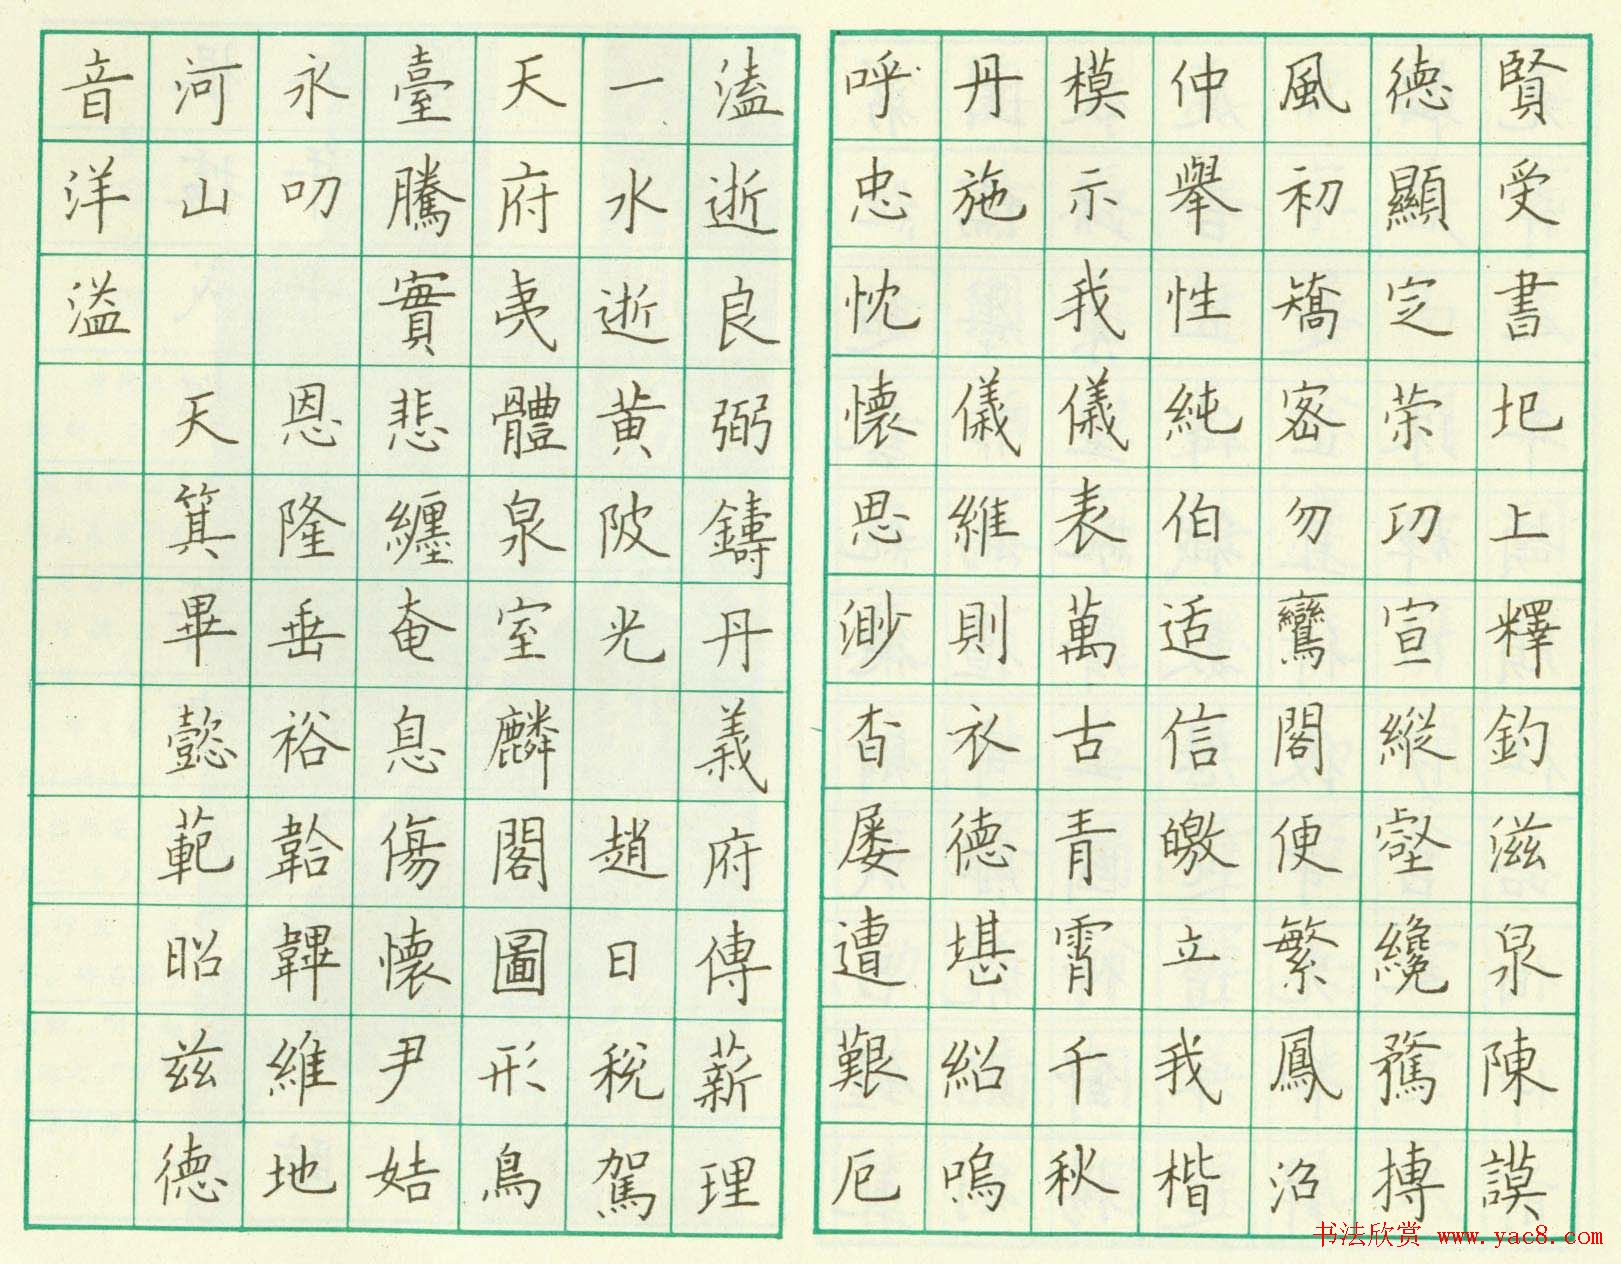 賢受書圯上釋釣滋泉陳謨
德顯定荣功宣縱壑纔騖摶
風初矯密勿鸞閣便繁鳳沼
仲舉性純伯适信皦立我楷
模示我儀表萬古青霄千秋
丹施 儀維則衣德堪紹嗚
呼忠忱懷思渺杳屡遭艱厄
溘逝良弼鑄丹義府傳薪理
一水逝黄陂光 趙日税駕
天府夷體泉室麟閣圖形鳥
臺騰實悲纏奄息傷懷尹姞
永叨 恩隆垂裕韐韠維地
河山 天箕畢懿範昭兹德
音洋溢
书法欣赏 www.yac8.com